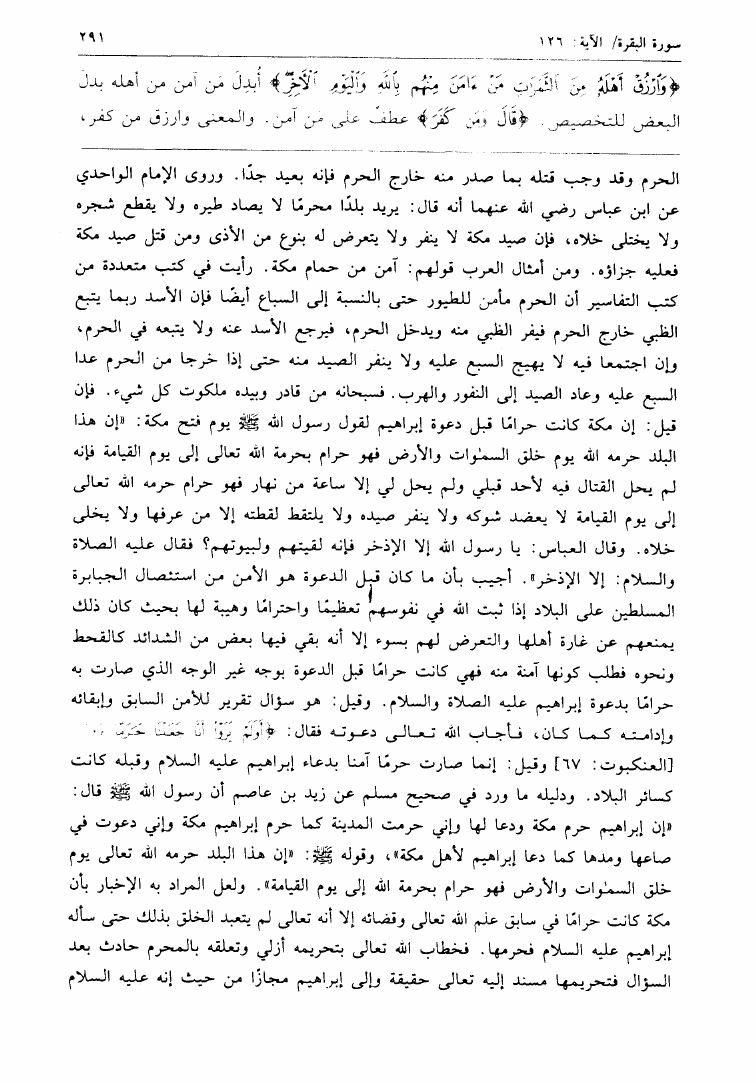 سورة البقرة/ الآية: ١٢٦
٢٩١
﴿وَارْزُقْ أَهْلَهُ مِنَ الثَّمَرَاتِ مَنْ ءَامَنَ مِنْهُم بِاللَّهِ وَالْيَوْمِ الْآخِرِ﴾ أُبدِلَ مَن آمن من أهله بدلَ
البعض للتخصيص. ﴿قَالَ وَمَن كَفَرَ﴾ عطفٌ على مَن آمن. والمعنى وارزق من كفر،
الحرم وقد وجب قتله بما صدر منه خارج الحرم فإنه بعيد جدًا. وروى الإمام الواحدي
عن ابن عباس رضي الله عنهما أنه قال: يريد بلدًا محرمًا لا يصاد طيره ولا يقطع شجره
ولا يختلى خلاه، فإن صيد مكة لا ينفر ولا يتعرض له بنوع من الأذى ومن قتل صيد مكة
فعليه جزاؤه. ومن أمثال العرب قولهم: آمن من حمام مكة. رأيت في كتب متعددة من
كتب التفاسير أن الحرم مأمن للطيور حتى بالنسبة إلى السباع أيضًا فإن الأسد ربما يتبع
الظبي خارج الحرم فيفر الظبي منه ويدخل الحرم، فيرجع الأسد عنه ولا يتبعه في الحرم،
وإن اجتمعا فيه لا يهيج السبع عليه ولا ينفر الصيد منه حتى إذا خرجا من الحرم عدا
السبع عليه وعاد الصيد إلى النفور والهرب. فسبحانه من قادر وبيده ملكوت كل شيء. فإن
قيل: إن مكة كانت حرامًا قبل دعوة إبراهيم لقول رسول الله ﷺ يوم فتح مكة: «إن هذا
البلد حرمه الله يوم خلق السمٰوات والأرض فهو حرام بحرمة الله تعالى إلى يوم القيامة فإنه
لم يحل القتال فيه لأحد قبلي ولم يحل لي إلا ساعة من نهار فهو حرام حرمه الله تعالى
إلى يوم القيامة لا يعضد شوكه ولا ينفر صيده ولا يلتقط لقطته إلا من عرفها ولا يخلى
خلاه. وقال العباس: يا رسول الله إلا الإذخر فإنه لقيتهم ولبيوتهم؟ فقال عليه الصلاة
والسلام: إلا الإذخر». أجيب بأن ما كان قبل الدعوة هو الأمن من استئصال الجبابرة
المسلطين على البلاد إذا ثبت الله في نفوسهم تعظيمًا واحترامًا وهيبة لها بحيث كان ذلك
يمنعهم عن غارة أهلها والتعرض لهم بسوء إلا أنه بقي فيها بعض من الشدائد كالقحط
ونحوه فطلب كونها آمنة منه فهي كانت حرامًا قبل الدعوة بوجه غير الوجه الذي صارت به
حرامًا بدعوة إبراهيم عليه الصلاة والسلام. وقيل: هو سؤال تقرير للأمن السابق وإبقائه
وإدامته كما كان، فأجاب الله تعالى دعوته فقال: ﴿أَوَلَمْ يَرَوْا أَنَّا جَعَلْنَا حَرَمًا
[العنكبوت: ٦٧] وقيل: إنما صارت حرمًا آمنا بدعاء إبراهيم عليه السلام وقبله كانت
كسائر البلاد. ودليله ما ورد في صحيح مسلم عن زيد بن عاصم أن رسول الله ﷺ قال:
«إن إبراهيم حرم مكة ودعا لها وإني حرمت المدينة كما حرم إبراهيم مكة وإني دعوت في
صاعها ومدها كما دعا إبراهيم لأهل مكة»، وقوله ﷺ: «إن هذا البلد حرمه الله تعالى يوم
خلق السمٰوات والأرض فهو حرام بحرمة الله إلى يوم القيامة». ولعل المراد به الإخبار بأن
مكة كانت حرامًا في سابق علم الله تعالى وقضائه إلا أنه تعالى لم يتعبد الخلق بذلك حتى سأله
إبراهيم عليه السلام فحرمها. فخطاب الله تعالى بتحريمه أزلي وتعلقه بالمحرم حادث بعد
السؤال فتحريمها مسند إليه تعالى حقيقة وإلى إبراهيم مجازًا من حيث إنه عليه السلام